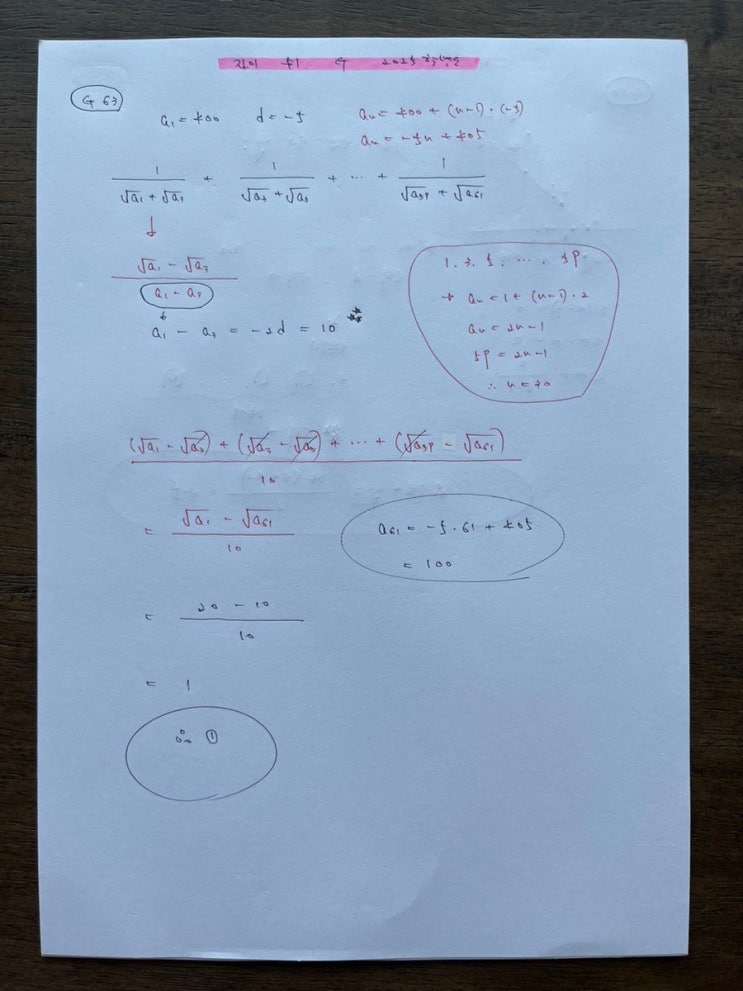 자이 수1 G 2025
G 63
a₁ = 400 d = -5 aₙ = 400 + (n-1)·(-5)
aₙ = -5n + 405
1/(√a₁ + √a₃) + 1/(√a₃ + √a₅) + ··· + 1/(√a₅₉ + √a₆₁)
↓
(√a₁ - √a₃)/(a₁ - a₃)
a₁ - a₃ = -2d = 10
1. 3. 5. ···. 59
→ aₙ = 1 + (n-1)·2
aₙ = 2n-1
59 = 2n-1
∴ n = 30
((√a₁ - √a₃) + (√a₃ - √a₅) + ··· + (√a₅₉ - √a₆₁))/10
= (√a₁ - √a₆₁)/10
a₆₁ = -5·61 + 405
= 100
= (20 - 10)/10
= 1
∴ ①